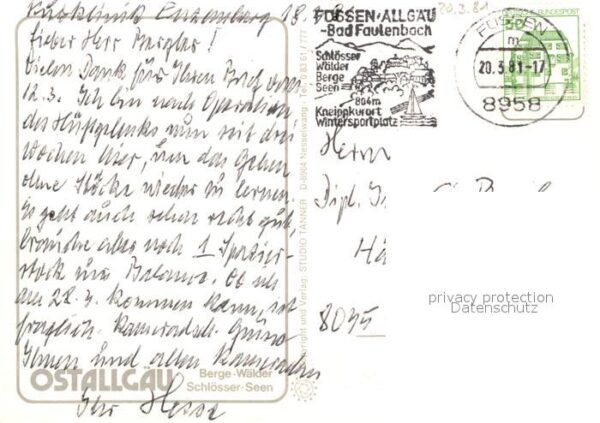 Kurklinik Enzensberg 18.3.81
Lieber Herr
Vielen Dank für Ihren Brief vom
12.3. Ich bin nach Operation
des Hüftgelenks nun seit drei
Wochen hier, um das Gehen
ohne Stöcke wieder zu lernen.
Es geht auch schon recht gut,
brauche aber noch 1 Spazier-
stock zur Balance. Ob ich
am 22.4. kommen kann, ist
fraglich. Kameradsch. Grüße
Ihnen und allen Kameraden
Ihr Hesse
OSTALLGÄU
Berge · Wälder
Schlösser · Seen
Copyright und Verlag: STUDIO TANNER D-8964 Nesselwang · Tel. 0 83 61 / 777
FÜSSEN·ALLGÄU
-Bad Faulenbach
Schlösser
Wälder
Berge
Seen
804m
Kneippkurort
Wintersportplatz
20.3.81
FÜSSEN
m
20.3.81-17
8958
BUNDESPOST
Herrn
Dipl.
8035
privacy protection
Datenschutz